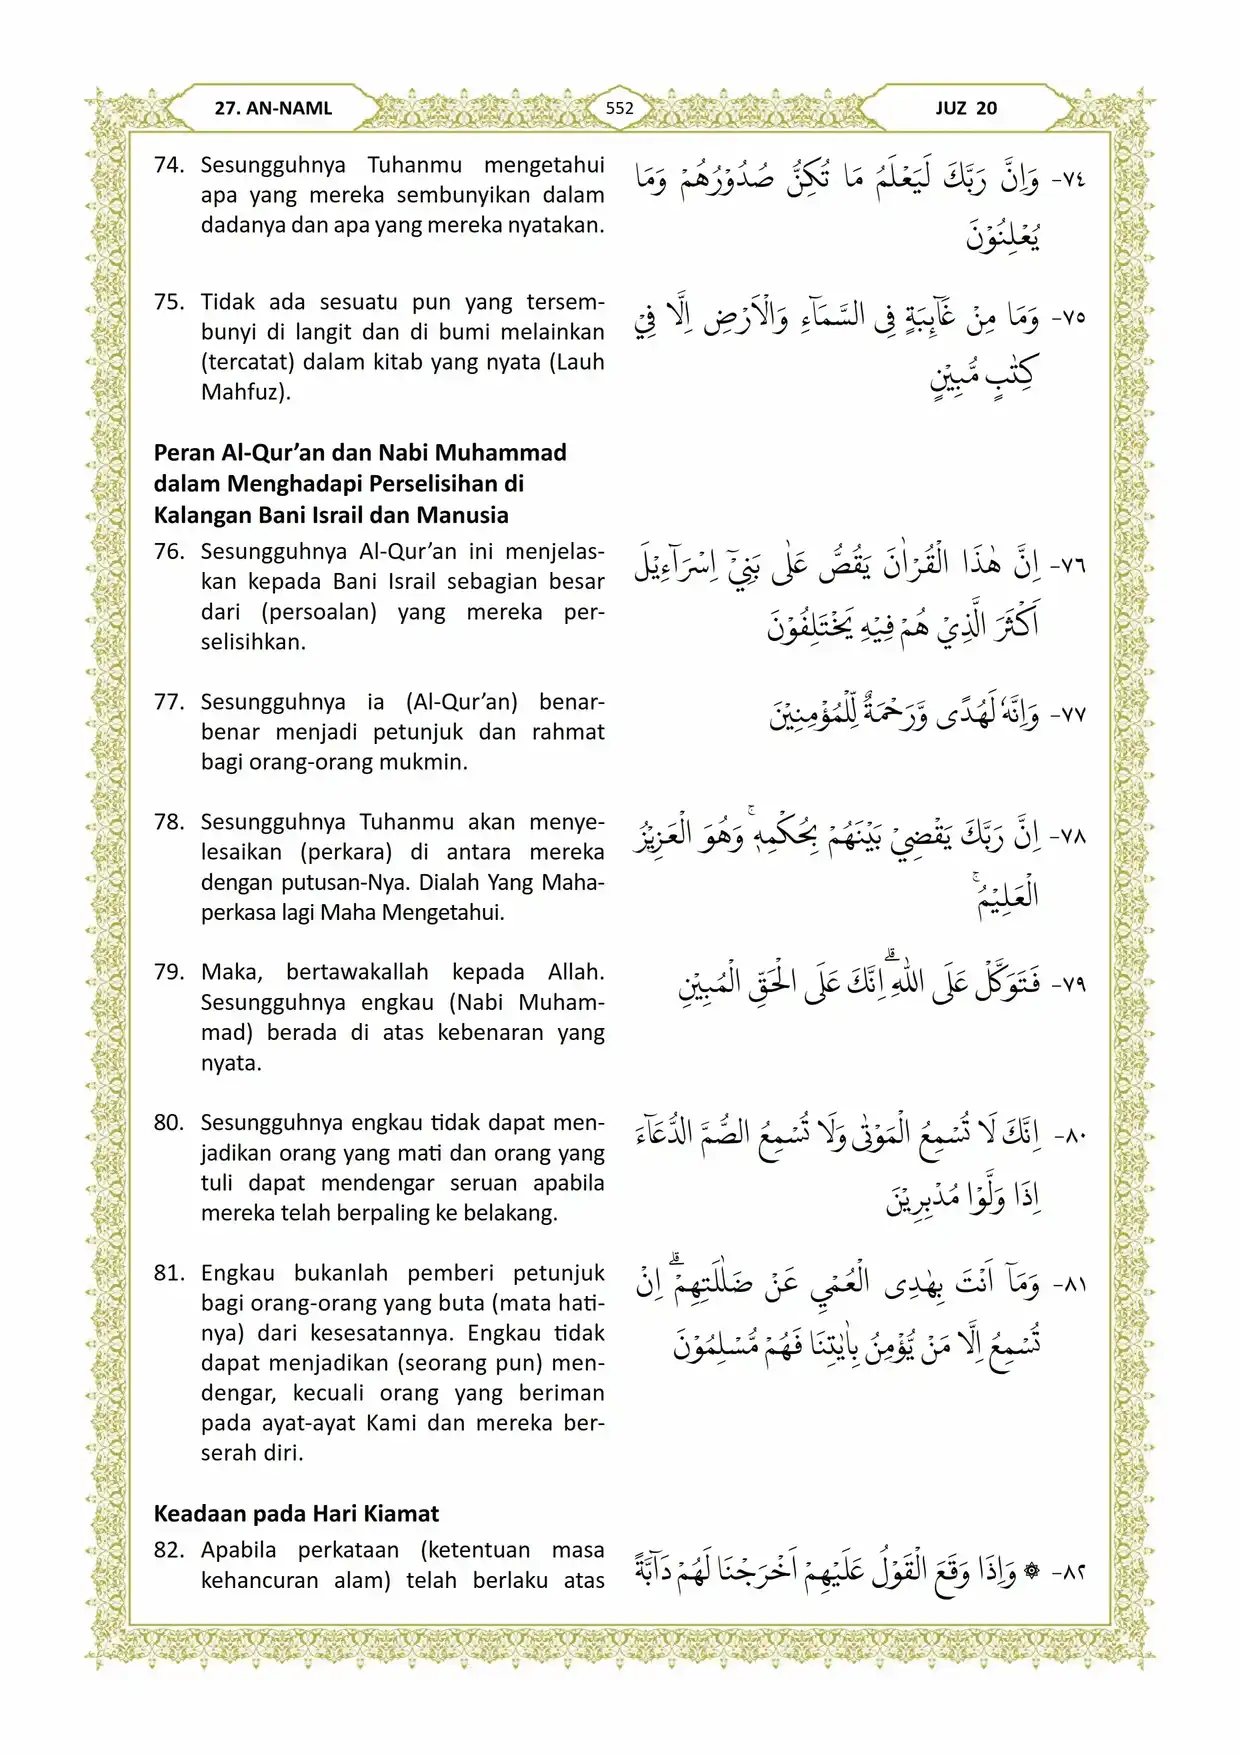 27. AN-NAML
552
JUZ 20
74. Sesungguhnya Tuhanmu mengetahui
apa yang mereka sembunyikan dalam
dadanya dan apa yang mereka nyatakan.
٧٤- وَاِنَّ رَبَّكَ لَيَعْلَمُ مَا تُكِنُّ صُدُوْرُهُمْ وَمَا
يُعْلِنُوْنَ
75. Tidak ada sesuatu pun yang tersem-
bunyi di langit dan di bumi melainkan
(tercatat) dalam kitab yang nyata (Lauh
Mahfuz).
٧٥- وَمَا مِنْ غَاۤىِٕبَةٍ فِى السَّمَاۤءِ وَالْاَرْضِ اِلَّا فِيْ
كِتٰبٍ مُّبِيْنٍ
Peran Al-Qur’an dan Nabi Muhammad
dalam Menghadapi Perselisihan di
Kalangan Bani Israil dan Manusia
76. Sesungguhnya Al-Qur’an ini menjelas-
kan kepada Bani Israil sebagian besar
dari (persoalan) yang mereka per-
selisihkan.
٧٦- اِنَّ هٰذَا الْقُرْاٰنَ يَقُصُّ عَلٰى بَنِيْٓ اِسْرَاۤءِيْلَ
اَكْثَرَ الَّذِيْ هُمْ فِيْهِ يَخْتَلِفُوْنَ
77. Sesungguhnya ia (Al-Qur’an) benar-
benar menjadi petunjuk dan rahmat
bagi orang-orang mukmin.
٧٧- وَاِنَّهٗ لَهُدًى وَّرَحْمَةٌ لِّلْمُؤْمِنِيْنَ
78. Sesungguhnya Tuhanmu akan menye-
lesaikan (perkara) di antara mereka
dengan putusan-Nya. Dialah Yang Maha-
perkasa lagi Maha Mengetahui.
٧٨- اِنَّ رَبَّكَ يَقْضِيْ بَيْنَهُمْ بِحُكْمِهٖۚ وَهُوَ الْعَزِيْزُ
الْعَلِيْمُۚ
79. Maka, bertawakallah kepada Allah.
Sesungguhnya engkau (Nabi Muham-
mad) berada di atas kebenaran yang
nyata.
٧٩- فَتَوَكَّلْ عَلَى اللّٰهِ ۗاِنَّكَ عَلَى الْحَقِّ الْمُبِيْنِ
80. Sesungguhnya engkau tidak dapat men-
jadikan orang yang mati dan orang yang
tuli dapat mendengar seruan apabila
mereka telah berpaling ke belakang.
٨٠- اِنَّكَ لَا تُسْمِعُ الْمَوْتٰى وَلَا تُسْمِعُ الصُّمَّ الدُّعَاۤءَ
اِذَا وَلَّوْا مُدْبِرِيْنَ
81. Engkau bukanlah pemberi petunjuk
bagi orang-orang yang buta (mata hati-
nya) dari kesesatannya. Engkau tidak
dapat menjadikan (seorang pun) men-
dengar, kecuali orang yang beriman
pada ayat-ayat Kami dan mereka ber-
serah diri.
٨١- وَمَآ اَنْتَ بِهٰدِى الْعُمْيِ عَنْ ضَلٰلَتِهِمْۗ اِنْ
تُسْمِعُ اِلَّا مَنْ يُّؤْمِنُ بِاٰيٰتِنَا فَهُمْ مُّسْلِمُوْنَ
Keadaan pada Hari Kiamat
82. Apabila perkataan (ketentuan masa
kehancuran alam) telah berlaku atas
٨٢- ۞ وَاِذَا وَقَعَ الْقَوْلُ عَلَيْهِمْ اَخْرَجْنَا لَهُمْ دَاۤبَّةً